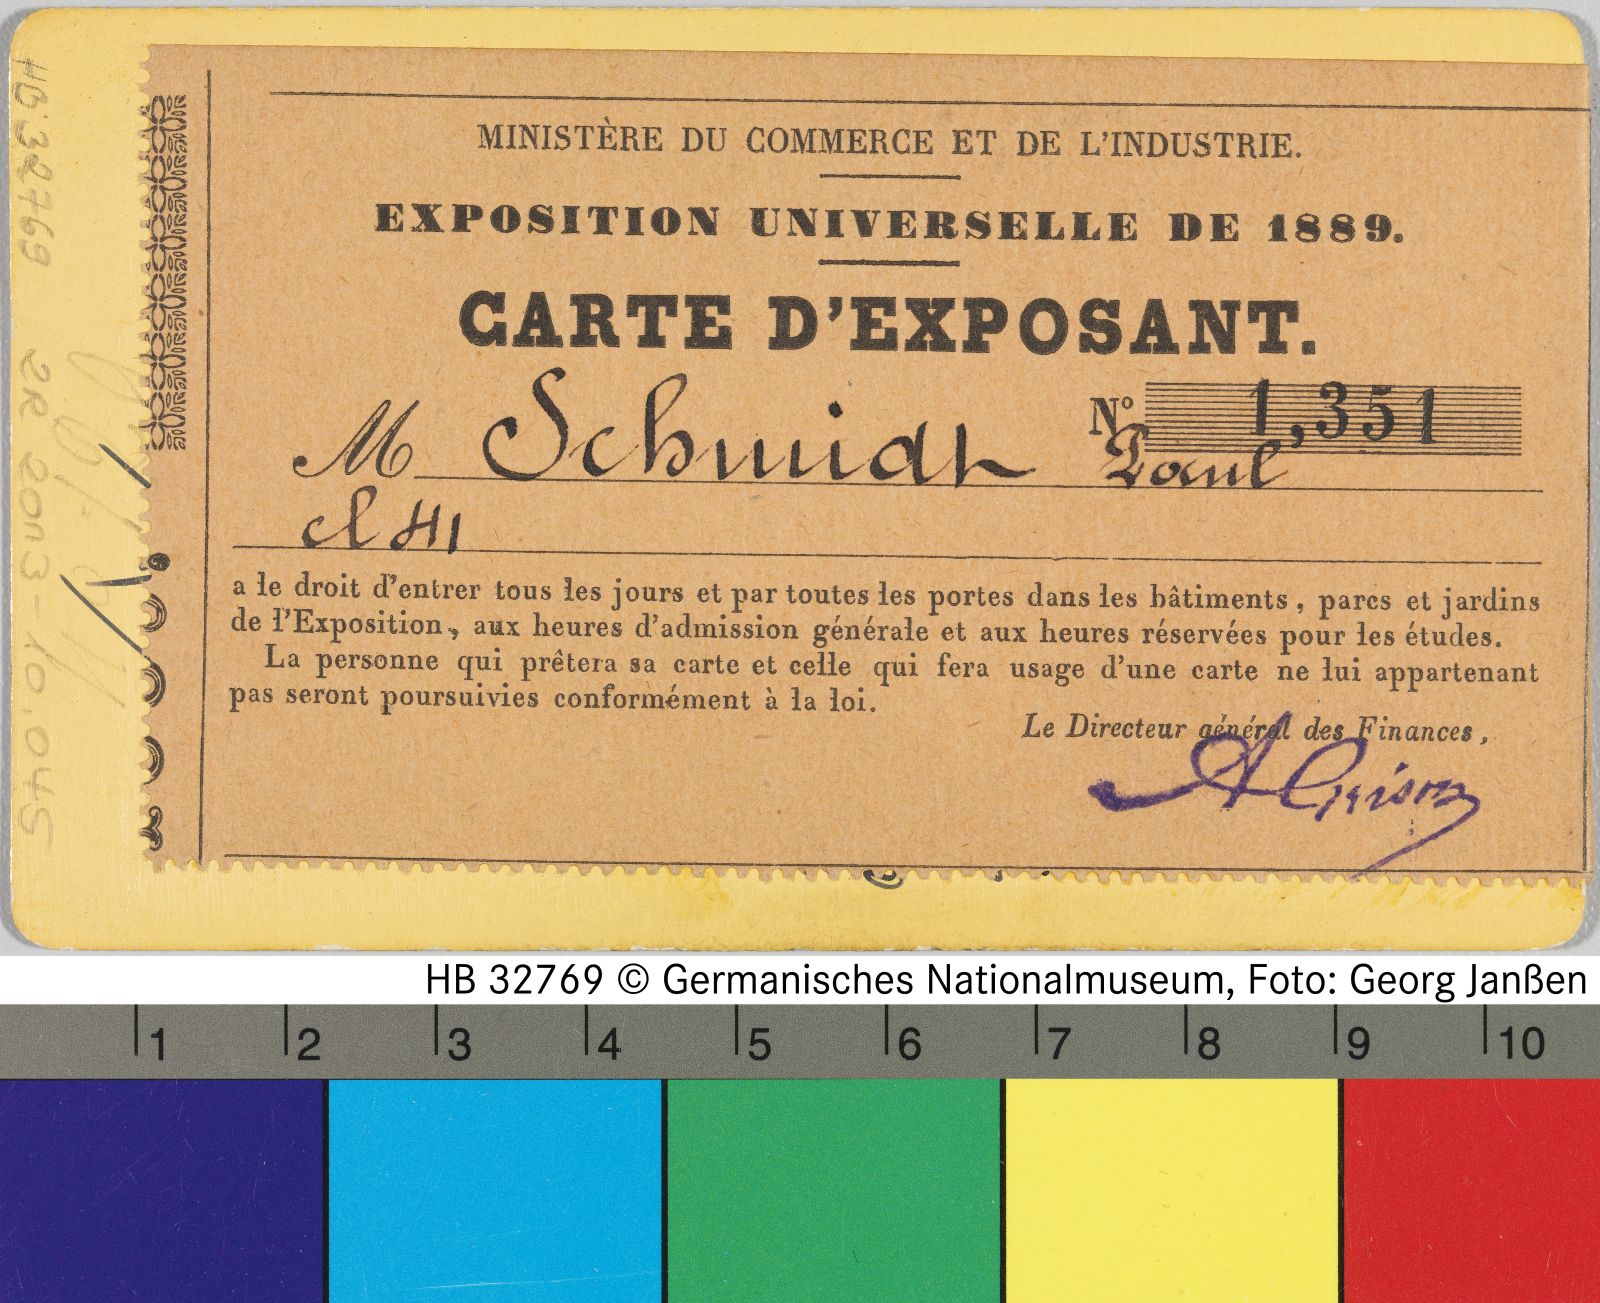 MINISTÈRE DU COMMERCE ET DE L'INDUSTRIE.
EXPOSITION UNIVERSELLE DE 1889.
CARTE D'EXPOSANT.
N° 1,351
M Schmidt Paul
cl 41
a le droit d'entrer tous les jours et par toutes les portes dans les bâtiments, parcs et jardins
de l'Exposition, aux heures d'admission générale et aux heures réservées pour les études.
La personne qui prêtera sa carte et celle qui fera usage d'une carte ne lui appartenant
pas seront poursuivies conformément à la loi.
Le Directeur général des Finances,
A Grison
HB 32769 ZR 2003-10.045
HB 32769 © Germanisches Nationalmuseum, Foto: Georg Janßen
1 2 3 4 5 6 7 8 9 10